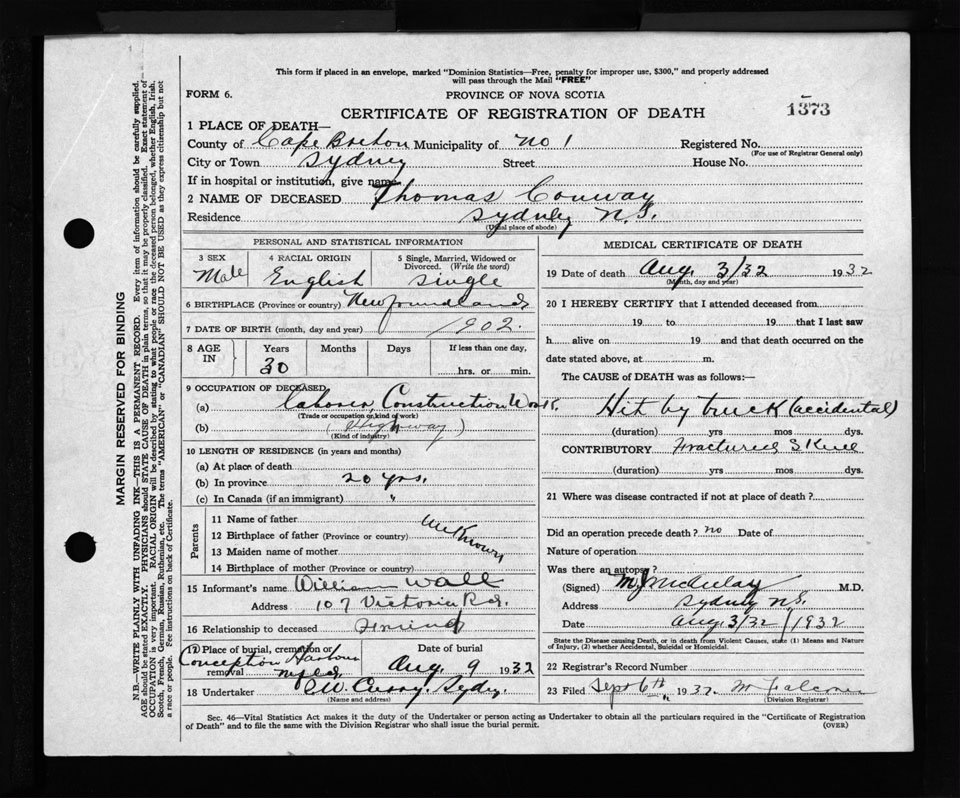 This form if placed in an envelope, marked "Dominion Statistics—Free, penalty for improper use, $300," and properly addressed
will pass through the Mail "FREE"
FORM 6.
PROVINCE OF NOVA SCOTIA
CERTIFICATE OF REGISTRATION OF DEATH
1373
1 PLACE OF DEATH—
County of Cape Breton Municipality of No 1 Registered No.
(For use of Registrar General only)
City or Town Sydney Street House No.
If in hospital or institution, give name
2 NAME OF DECEASED Thomas Conway
Residence Sydney N.S.
(Usual place of abode)
PERSONAL AND STATISTICAL INFORMATION
3 SEX Male
4 RACIAL ORIGIN English
5 Single, Married, Widowed or Divorced. (Write the word) Single
6 BIRTHPLACE (Province or country) Newfoundland
7 DATE OF BIRTH (month, day and year) 1902.
8 AGE IN Years 30 Months Days If less than one day, hrs. or min.
9 OCCUPATION OF DECEASED
(a) Laborer, Construction Work.
(Trade or occupation, or kind of work)
(b) (Highway)
(Kind of industry)
10 LENGTH OF RESIDENCE (in years and months)
(a) At place of death
(b) In province 20 yrs.
(c) In Canada (if an immigrant) "
Parents
11 Name of father
12 Birthplace of father (Province or country) Unknown
13 Maiden name of mother
14 Birthplace of mother (Province or country)
15 Informant's name William Wall
Address 107 Victoria Rd.
16 Relationship to deceased Friend
17 Place of burial, cremation or removal Conception Harbour Nfld.
Date of burial Aug. 9 1932
18 Undertaker Curry, Sydney
(Name and address)
MEDICAL CERTIFICATE OF DEATH
19 Date of death Aug. 3/32 1932
(Month, day and year)
20 I HEREBY CERTIFY that I attended deceased from
19 to 19 that I last saw
h alive on 19 and that death occurred on the
date stated above, at m.
The CAUSE of DEATH was as follows:—
Hit by truck (accidental)
(duration) yrs mos dys.
CONTRIBUTORY Fractured Skull
(duration) yrs mos dys.
21 Where was disease contracted if not at place of death?
Did an operation precede death? no Date of
Nature of operation
Was there an autopsy?
(Signed) M.D.
Address Sydney N.S.
Date Aug 3/32 1932
State the Disease causing Death, or in death from Violent Causes, state (1) Means and Nature
of Injury, (2) whether Accidental, Suicidal or Homicidal.
22 Registrar's Record Number
23 Filed Sept 6th 1932. M Falconer
(Division Registrar)
Sec. 46—Vital Statistics Act makes it the duty of the Undertaker or person acting as Undertaker to obtain all the particulars required in the "Certificate of Registration
of Death" and to file the same with the Division Registrar who shall issue the burial permit.
(OVER)
MARGIN RESERVED FOR BINDING
N.B.—WRITE PLAINLY WITH UNFADING INK—THIS IS A PERMANENT RECORD. Every item of information should be carefully supplied.
AGE should be stated EXACTLY. PHYSICIANS should STATE CAUSE OF DEATH in plain terms, so that it may be properly classified. Exact statement of
OCCUPATION is very important. RACIAL ORIGIN will be described by stating to what people or race the deceased person belonged, whether English, Irish,
Scotch, French, German, Russian, Ruthenian, etc. The terms "AMERICAN" or "CANADIAN" SHOULD NOT BE USED as they express citizenship but not
a race or people. Fee instructions on back of Certificate.